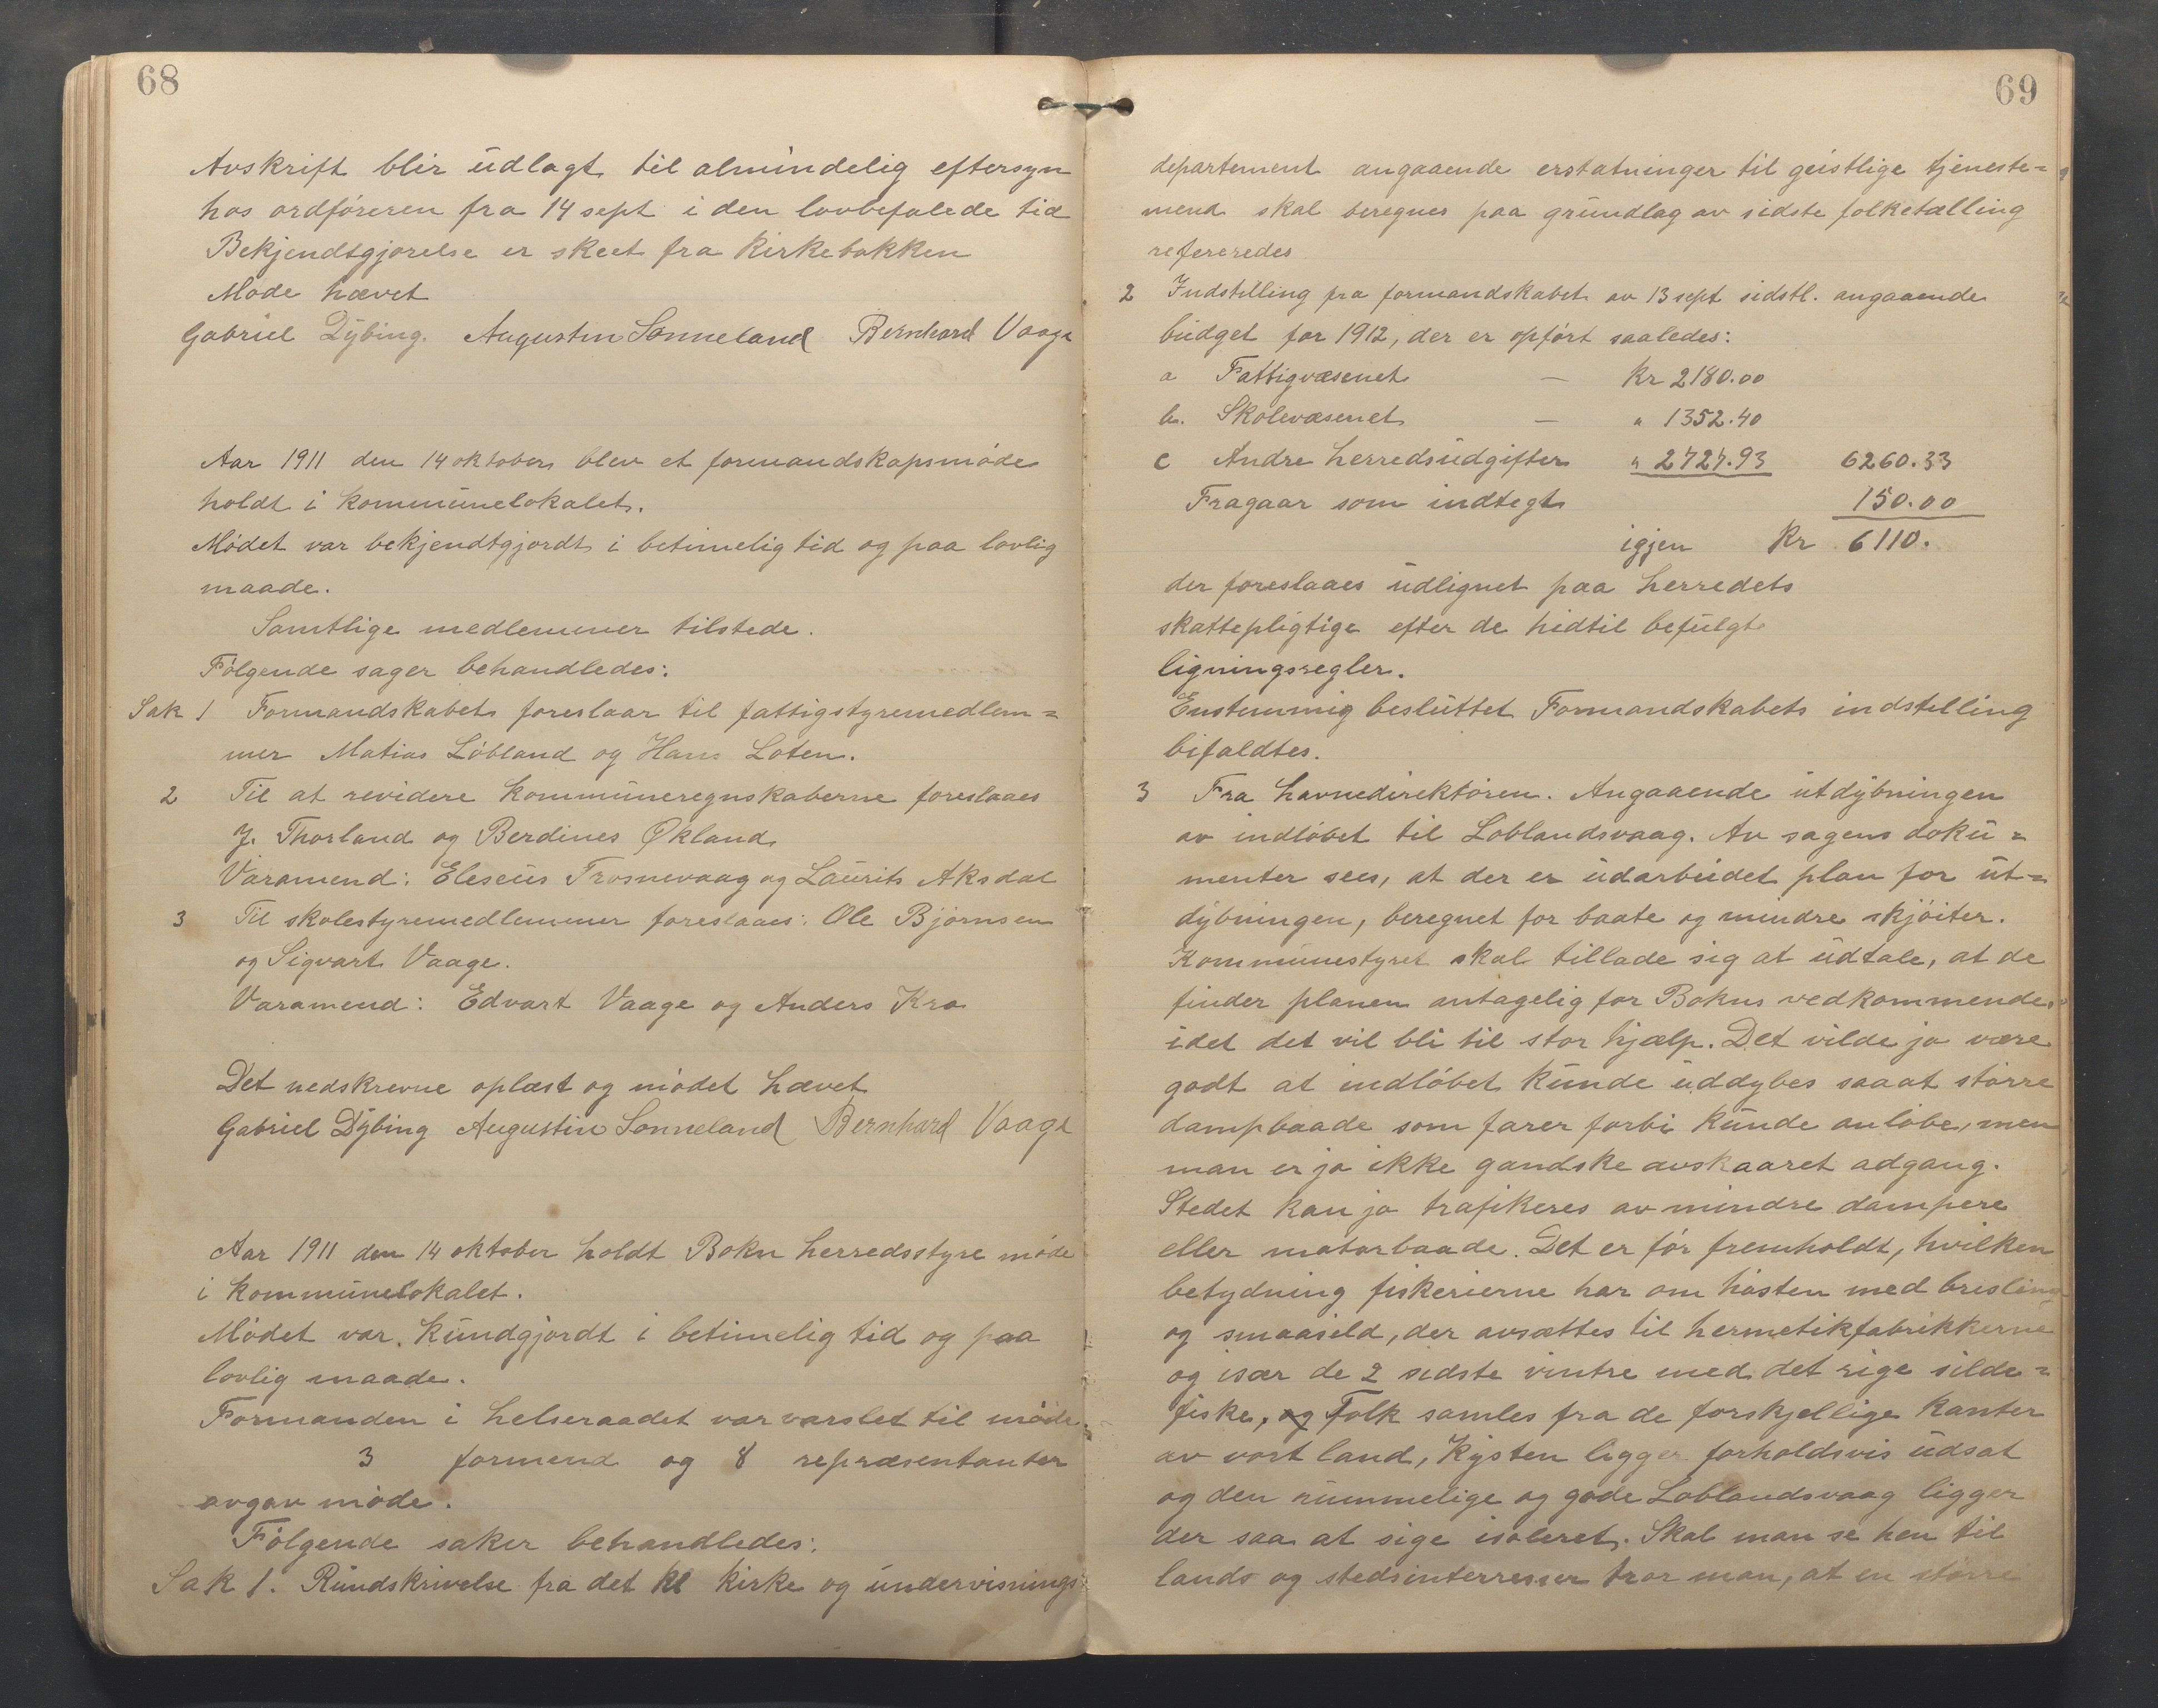 68
Avskrift blir udlagt til almindelig eftersyn
hos ordføreren fra 14 sept i den lovbefalede tid
Bekjendtgjørelse er skeet fra Kirkebakken
Møde hævet
Gabriel Dybing. Augustin Sønneland Bernhard Vaage
Aar 1911 den 14 oktober blev et formandskapsmøde
holdt i Kommunelokalet.
Mødet var bekjendtgjordt i betimelig tid og paa lovlig
maade.
Samtlige medlemmer tilstede.
Følgende sager behandledes:
Sak 1 Formandskabet foreslaar til fattigstyremedlem=
mer Matias Løbland og Hans Loten.
2 Til at revidere Kommuneregnskaberne foreslaaes
J. Thorland og Berdines Økland
Varamend: Eleseus Trosnevaag og Laurits Aksdal
3 Til skolestyremedlemmer foreslaaes: Ole Bjørnsen
og Sigvart Vaage.
Varamend: Edvart Vaage og Anders Kro
Det nedskrevne oplæst og mødet hævet
Gabriel Dybing Augustin Sønneland Bernhard Vaage
Aar 1911 den 14 oktober holdt Bokn herredsstyre møde
i Kommunelokalet.
Mødet var kundgjordt i betimelig tid og paa
lovlig maade.
Formanden i helseraadet var varslet til møde
3 formend og 8 repræsentanter
avgav møde.
Følgende saker behandledes:
Sak 1. Rundskrivelse fra det kl kirke og undervisnings
69
departement angaaende erstatninger til geistlige tjeneste=
mend skal beregnes paa grundlag av sidste folketælling
refereredes
2 Indstilling fra formandskabet av 13 sept sidstl. angaaende
budget for 1912, der er opført saaledes:
a Fattigvæsenet — Kr 2180.00
b. Skolevæsenet — " 1352.40
c Andre herredsudgifter " 2727.93 6260.33
Fragaar som indtegt 150.00
igjen Kr 6110.
der foreslaaes udlignet paa herredets
skattepligtige efter de hidtil befulgt
ligningsregler.
Enstemmig besluttet Formandskabets indstilling
bifaldtes.
3 Fra havnedirektøren. Angaaende utdybningen
av indløbet til Løblandsvaag. Av sagens doku=
menter sees, at der er udarbeidet plan for ut=
dybningen, beregnet for baate og mindre skjøiter.
Kommunestyret skal tillade sig at udtale, at de
finder planen antagelig for Bokns vedkommende,
idet det vil bli til stor hjælp. Det vilde jo være
godt at indløbet kunde uddybes saaat større
dampbaade som farer forbi kunde anløbe, men
man er jo ikke gandske avskaaret adgang.
Stedet kan jo trafikeres av mindre dampere
eller motorbaade. Det er før fremholdt, hvilken
betydning fiskerierne har om høsten med brisling
og smaasild, der avsættes til hermetikfabrikkerne
og især de 2 sidste vintre med det rige silde=
fiske, og Folk samles fra de forskjellige kanter
av vort land, Kysten ligger forholdsvis udsat
og den rummelige og gode Løblandsvaag ligger
der saa at sige isoleret. Skal man se hen til
lands og stedsinterresser tror man, at en større